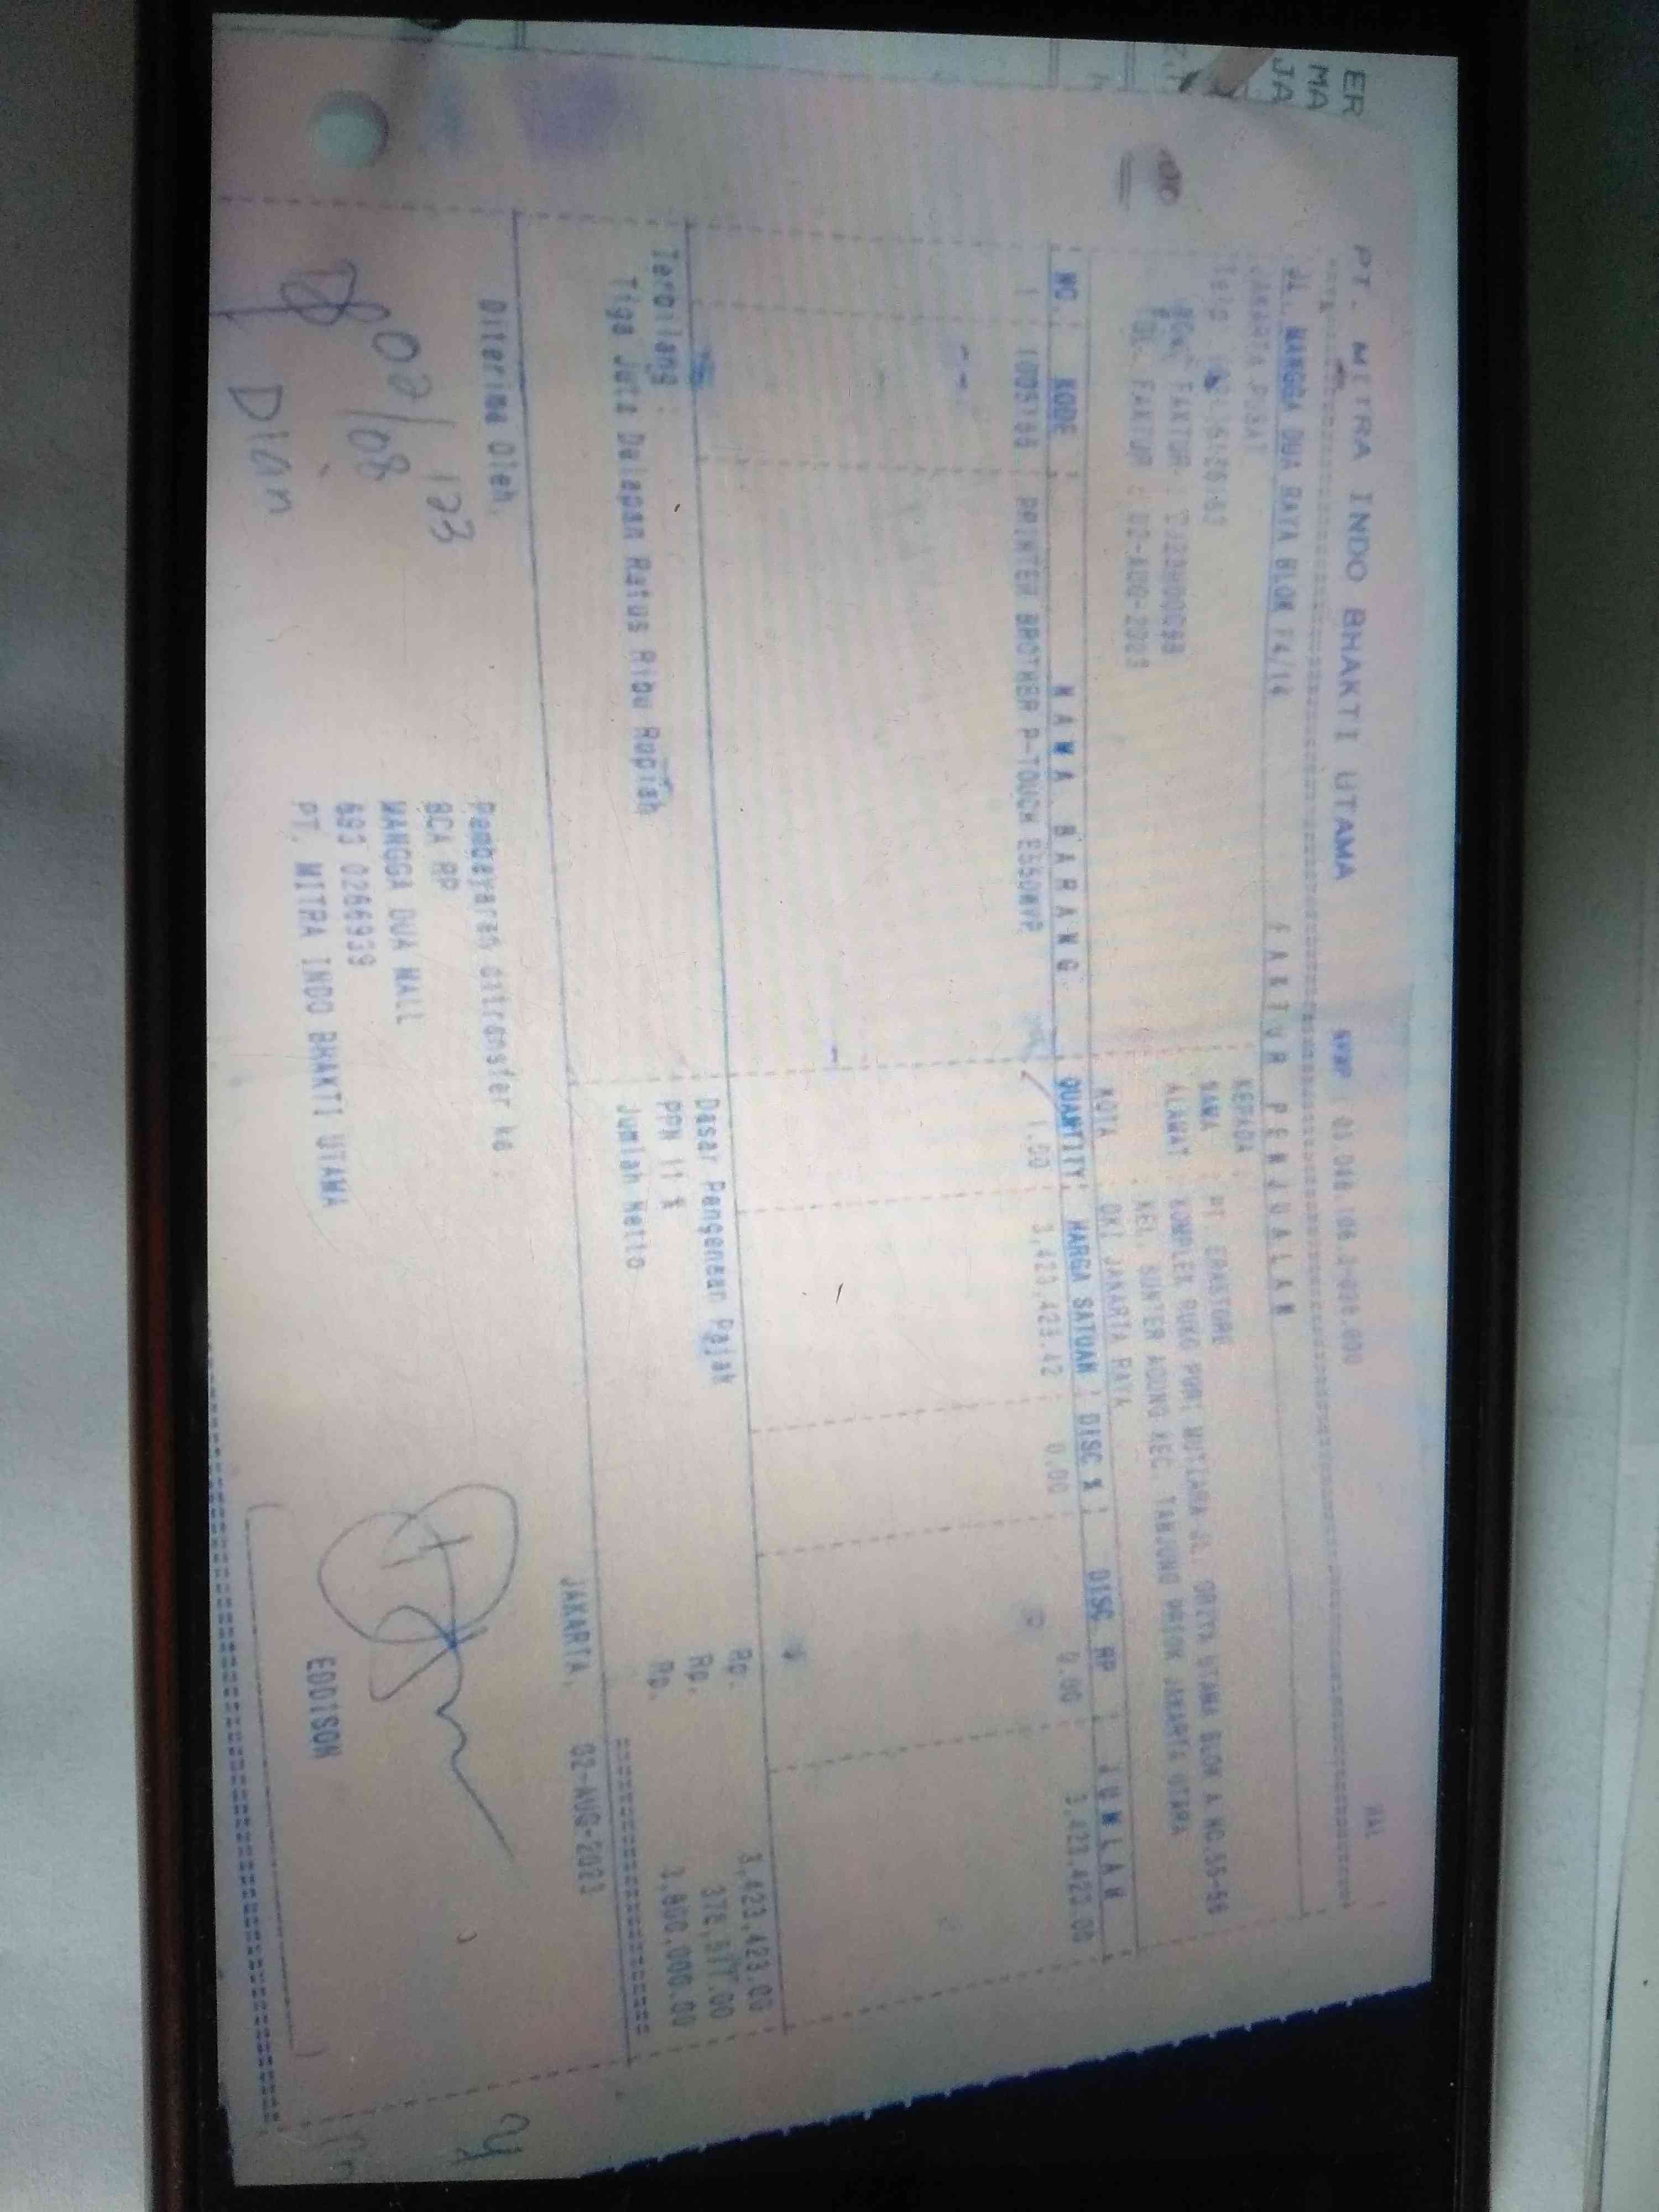 ER
MA
JA
PT. MITRA INDO BHAKTI UTAMA
NPWP :
HAL
JL. MANGGA DUA RAYA BLOK F4/14
FAKTUR PENJUALAN
JAKARTA PUSAT
KEPADA :
Telp
NAMA : PT. ERASTORE
FAKTUR :
ALAMAT : KOMPLEK RUKO PURI MUTIARA JL. GRIYA UTAMA BLOK A NO.55-56
KEL. SUNTER AGUNG KEC. TANJUNG PRIOK JAKARTA UTARA
TGL. FAKTUR : 02-AUG-2023
KOTA : DKI JAKARTA RAYA
NO. KODE NAMA BARANG QUANTITY HARGA SATUAN DISC % DISC RP JUMLAH
1 PRINTER BROTHER P-TOUCH E550WVP 1.00 3,423,423.42 0.00 0.00 3,423,423.00
Dasar Pengenaan Pajak Rp. 3,423,423.00
Terbilang :
PPN 11 % Rp. 376,577.00
Tiga Juta Delapan Ratus Ribu Rupiah
Jumlah Netto Rp. 3,800,000.00
JAKARTA, 02-AUG-2023
Diterima Oleh,
Pembayaran ditransfer ke :
BCA RP
MANGGA DUA MALL
693 0266939
PT. MITRA INDO BHAKTI UTAMA
02/08
Dian
EDDISON